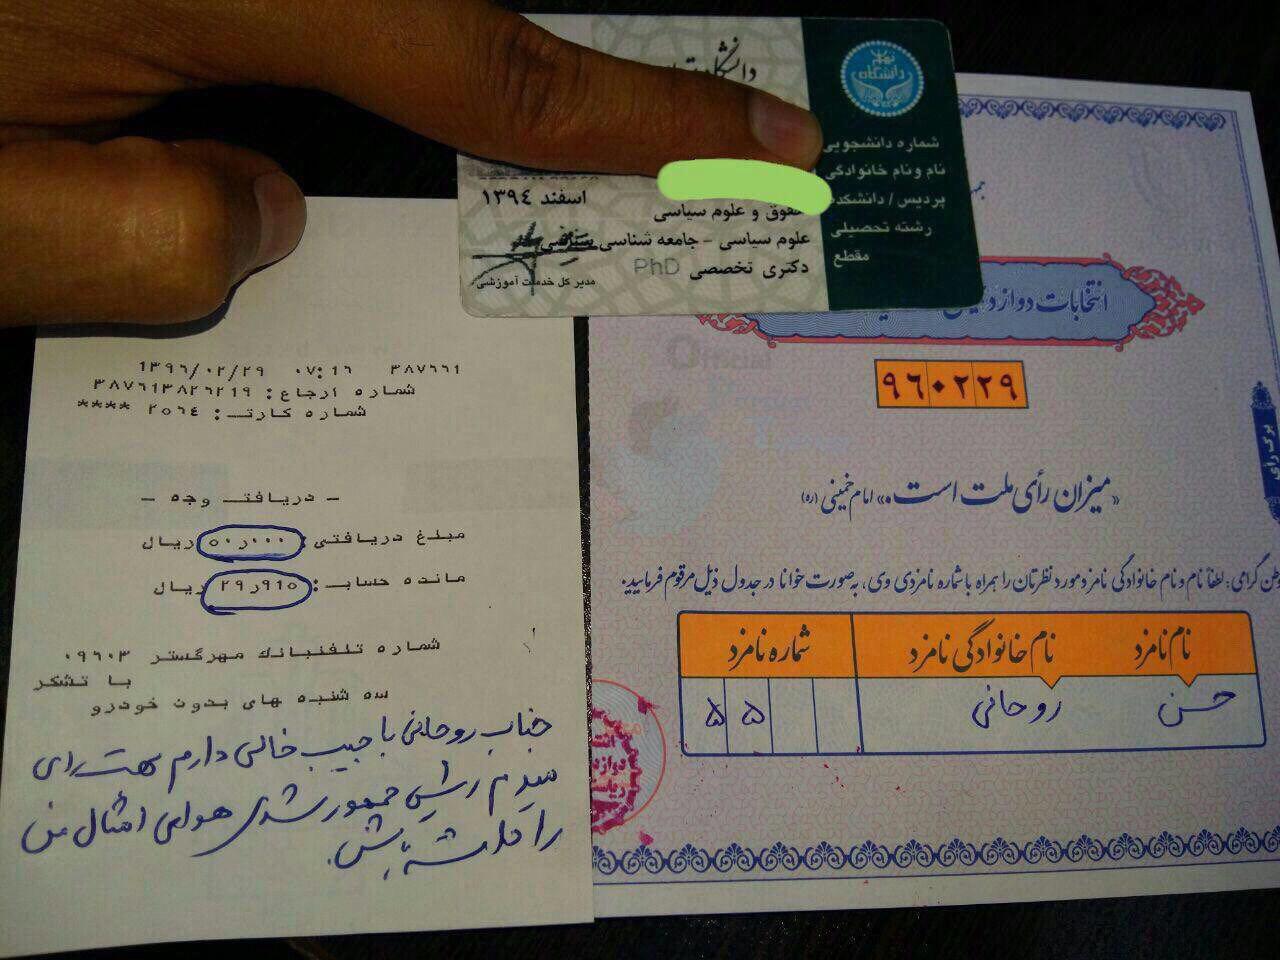 تهران
دانشگاه
شماره دانشجویی
نام و نام خانوادگی
پردیس / دانشکده
حقوق و علوم سیاسی
رشته تحصیلی
علوم سیاسی - جامعه شناسی سیاسی
مقطع
دکتری تخصصی PhD
اسفند ۱۳۹۴
مدیر کل خدمات آموزشی
۱۳۹۶/۰۲/۲۹ ۰۷:۱۶ ۳۸۷۶۶۱
شماره ارجاع: ۳۸۷۶۱۳۸۲۶۲۱۹
شماره کارت: ۲۵۶۴ ****
- دریافت وجه -
مبلغ دریافتی: ۵۰٫۰۰۰ ریال
مانده حساب: ۲۹٫۹۱۵ ریال
شماره تلفنبانک مهرگستر ۰۹۶۰۳
با تشکر
سه شنبه های بدون خودرو
جناب روحانی با جیب خالی دارم بهت رای
میدم رئیس جمهور شدی هوای امثال من
را داشته باش.
انتخابات دوازدهمین
۹۶۰۲۲۹
برگ رأی
Official
«میزان رأی ملت است.» امام خمینی (ره)
گرامی: لطفاً نام و نام خانوادگی نامزد مورد نظرتان را همراه با شماره نامزدی وی، به‌صورت خوانا در جدول ذیل مرقوم فرمایید.
نام نامزد نام خانوادگی نامزد شماره نامزد
حسن روحانی ۵۵